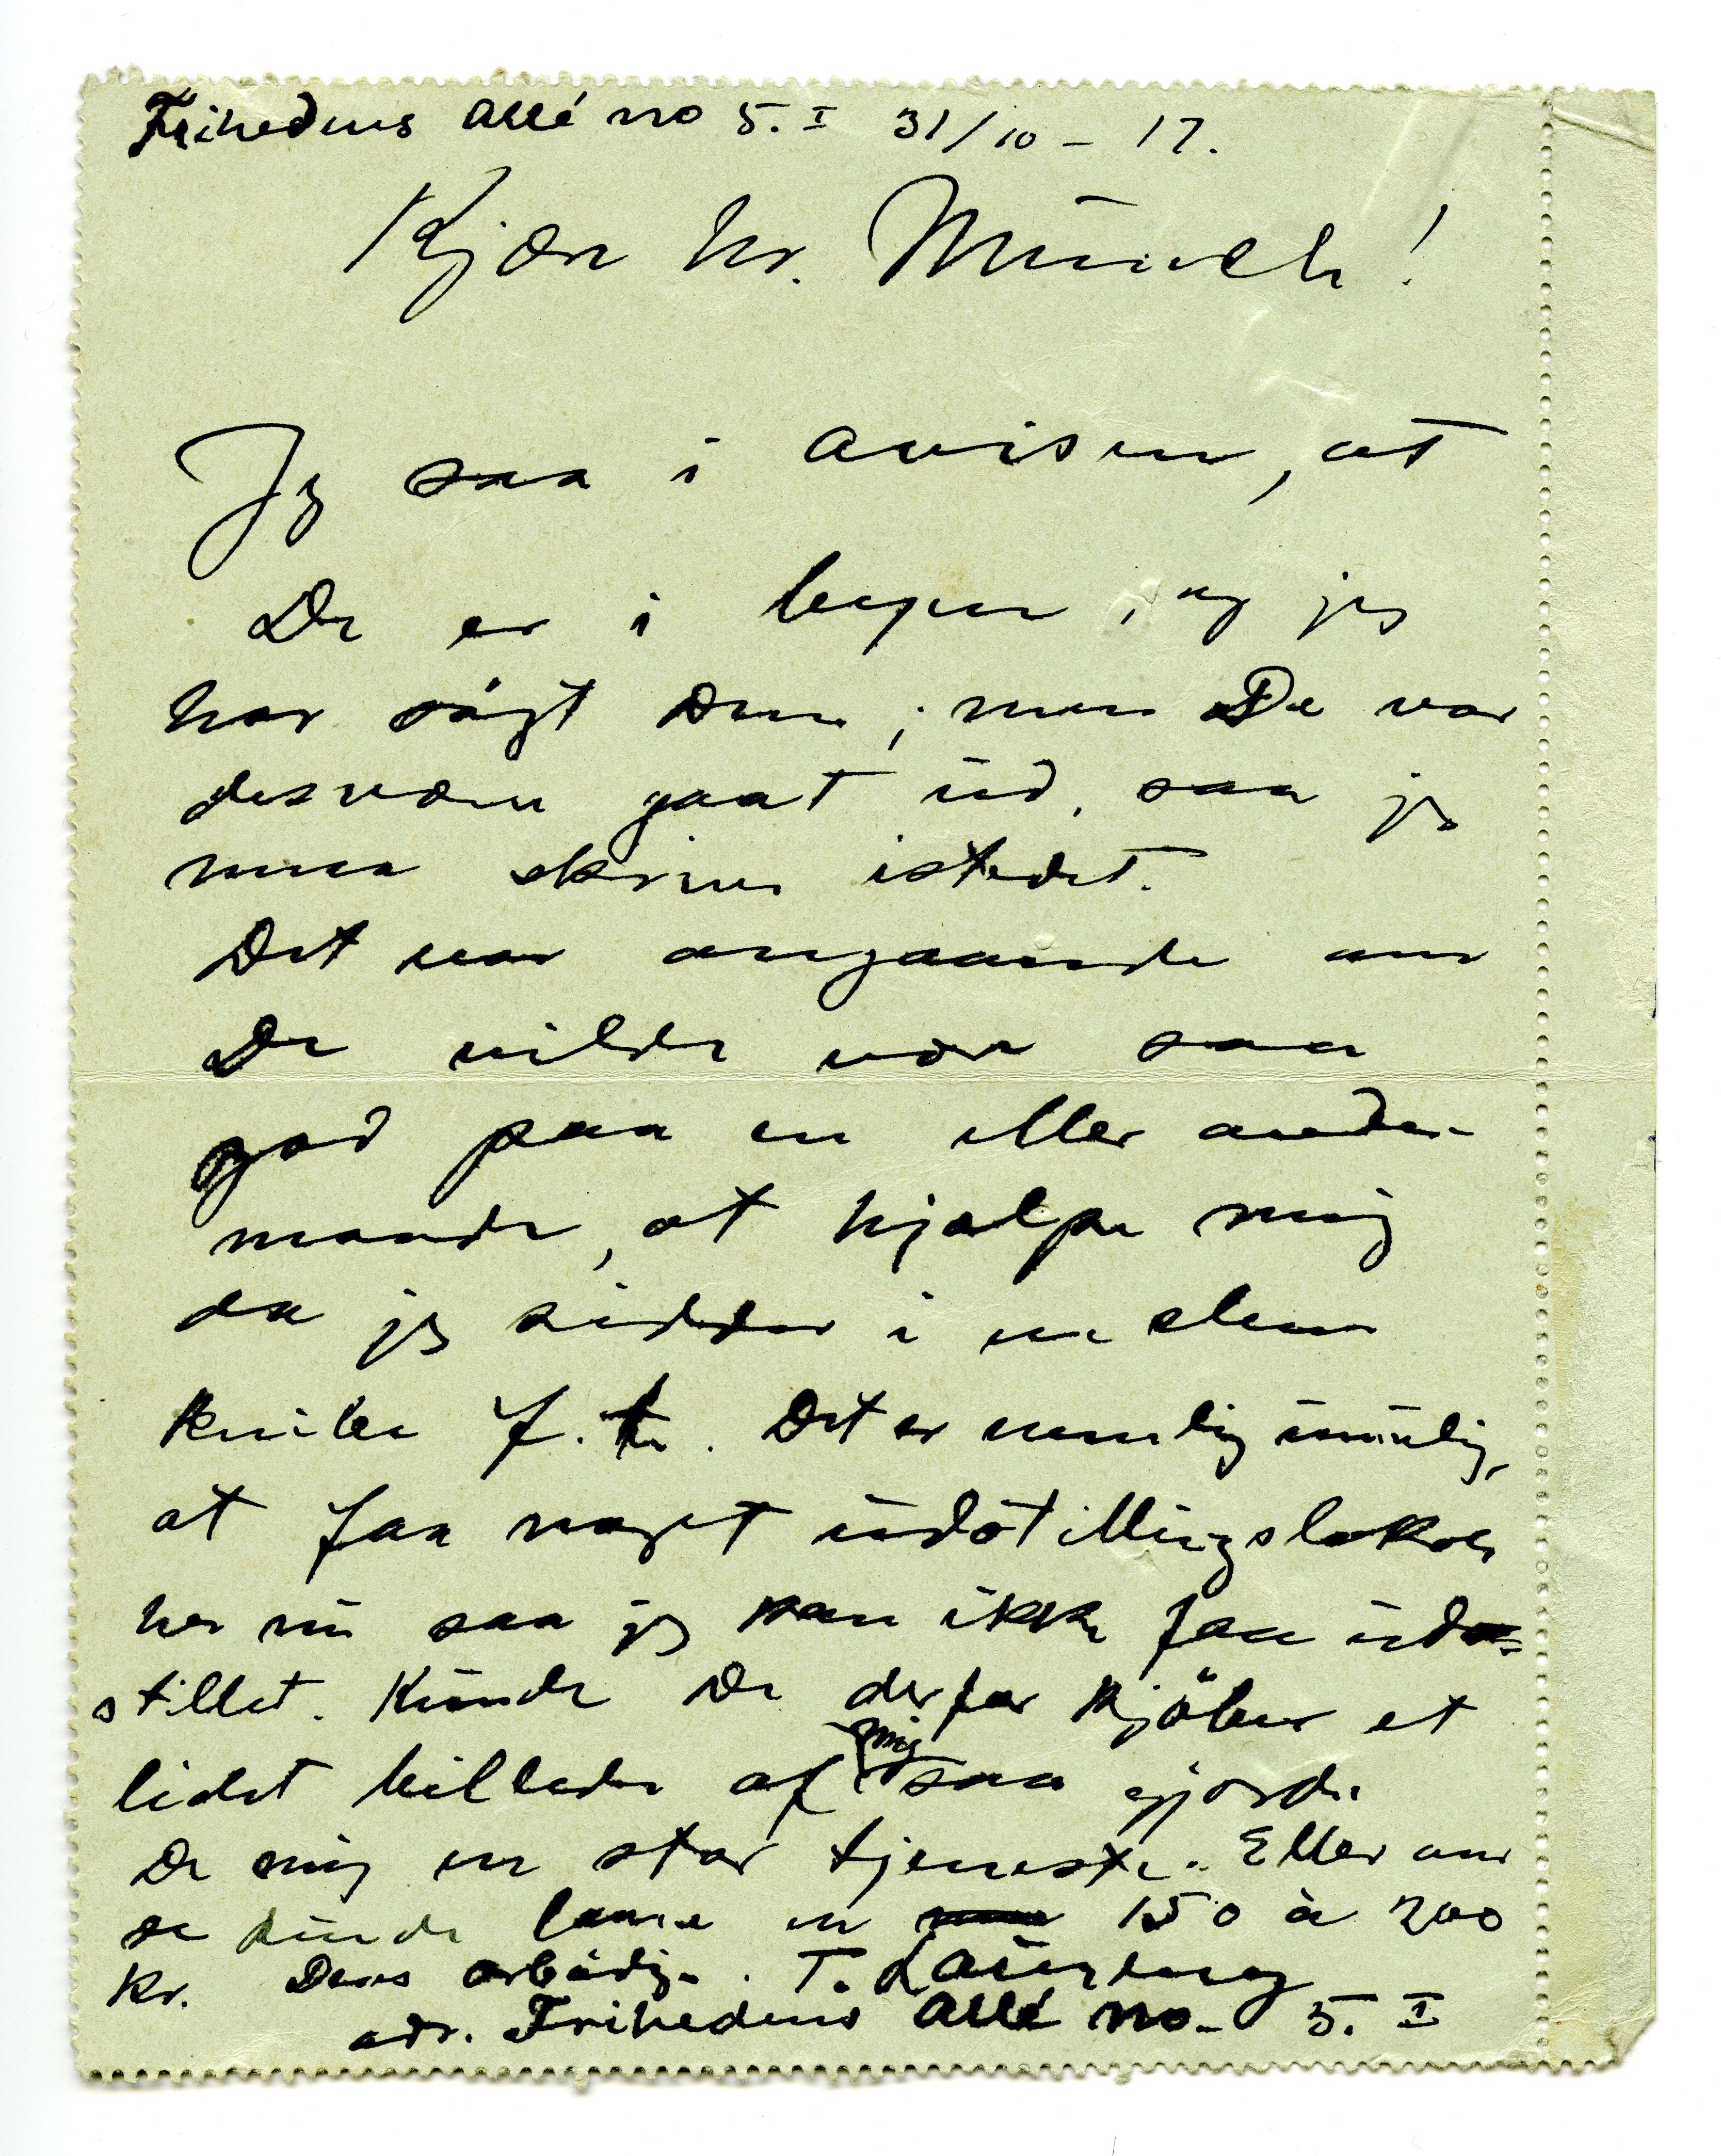 Frihedens Allé no 5. I 31/10 – 17.
Kjære hr. Münch!
Jeg saa i avisen, at
De er i byen, og jeg
har søgt Dem; men De var
desværre gaat ud, saa jeg
maa skrive istedet.
Det var angaaende om
De vilde være saa
god paa en eller anden
maade, at hjælpe mig
da jeg sidder i en slem
knibe f. t. Det er nemlig umulig,
at faa noget udstillingslokale
her nu saa jeg kan ikke faa ud-
stillet. Kunde De derfor kjøbe et
lidet billede af mig saa gjorde
De mig en stor tjeneste. Eller om
De kunde laane en 150 à 200
kr. Deres ærbødige. T.
adr. Frihedens Allé no. 5. I